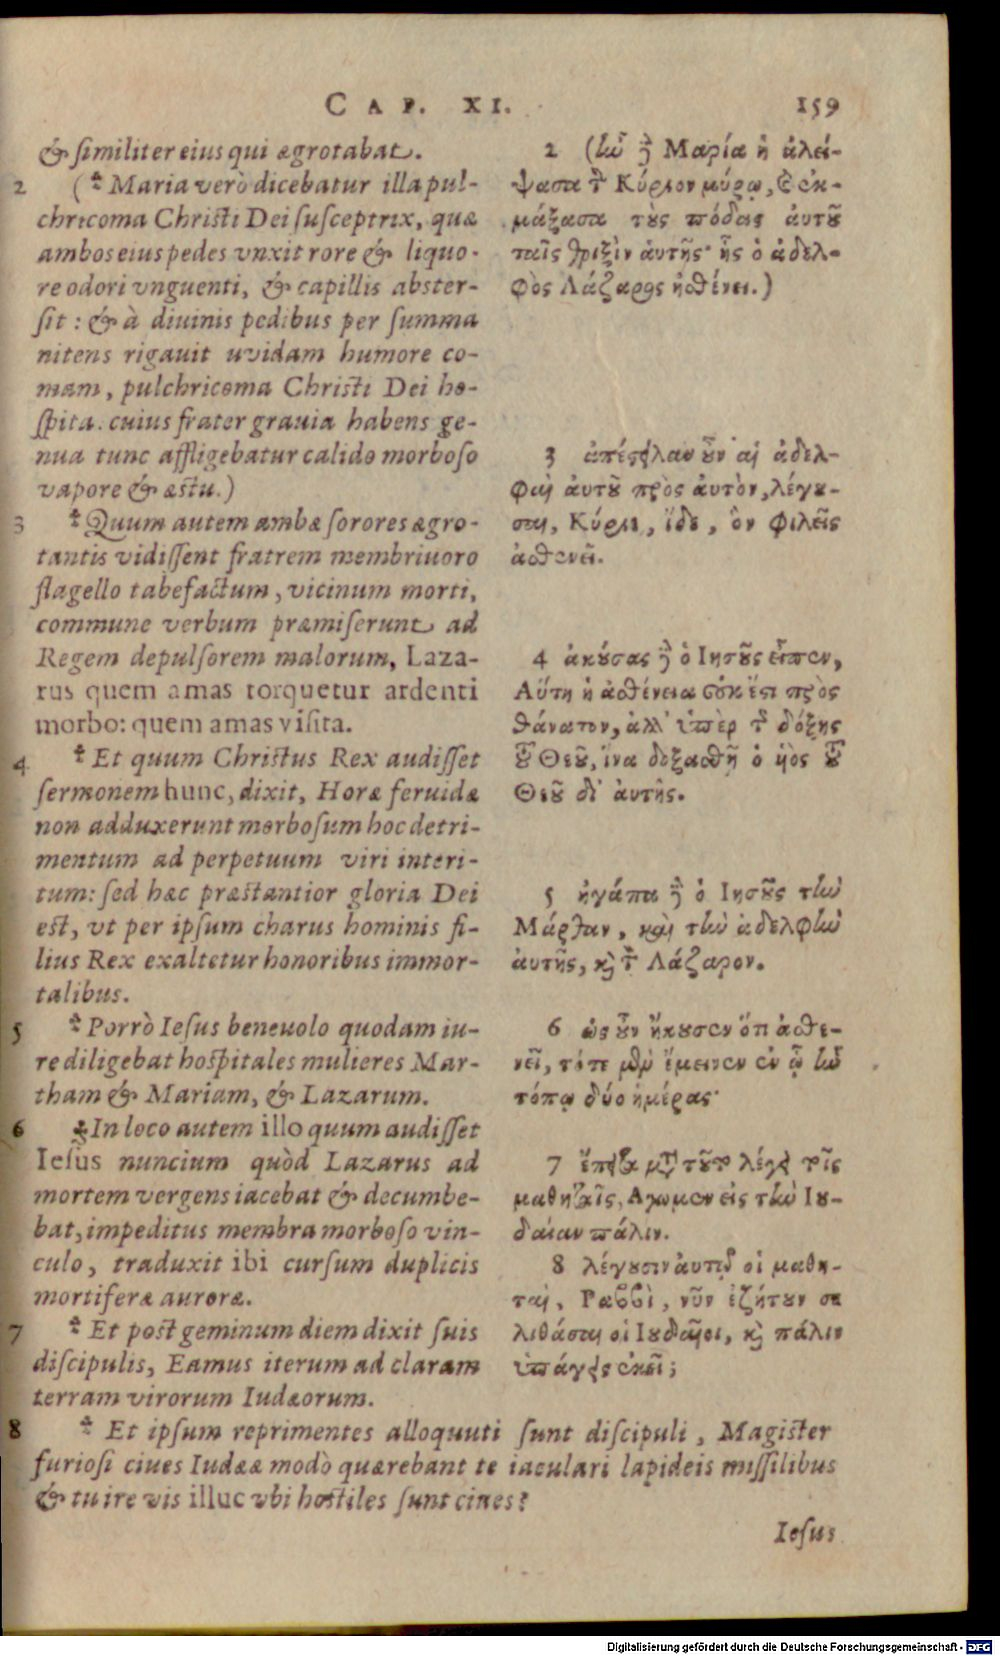 CAP. XI. 159
& similiter eius qui ægrotabat.
2 (* Maria verò dicebatur illa pul-
chricoma Christi Dei susceptrix, quæ
ambos eius pedes vnxit rore & liquo-
re odori vnguenti, & capillis abster-
sit: & à diuinis pedibus per summa
nitens rigauit uvidam humore co-
mam, pulchricoma Christi Dei ho-
spita. cuius frater grauia habens ge-
nua tunc affligebatur calido morboso
vapore & æstu.)
3 * Quum autem ambæ sorores ægro-
tantis vidissent fratrem membriuoro
flagello tabefactum, vicinum morti,
commune verbum præmiserunt ad
Regem depulsorem malorum, Laza-
rus quem amas torquetur ardenti
morbo: quem amas visita.
4 * Et quum Christus Rex audisset
sermonem hunc, dixit, Horæ feruidæ
non adduxerunt morbosum hoc detri-
mentum ad perpetuum viri interi-
tum: sed hæc præstantior gloria Dei
est, vt per ipsum charus hominis fi-
lius Rex exaltetur honoribus immor-
talibus.
5 * Porrò Iesus beneuolo quodam iu-
re diligebat hospitales mulieres Mar-
tham & Mariam, & Lazarum.
6 * In loco autem illo quum audisset
Iesus nuncium quòd Lazarus ad
mortem vergens iacebat & decumbe-
bat, impeditus membra morboso vin-
culo, traduxit ibi cursum duplicis
mortiferæ auroræ.
7 * Et post geminum diem dixit suis
discipulis, Eamus iterum ad claram
terram virorum Iudæorum.
8 * Et ipsum reprimentes alloquuti sunt discipuli, Magister
furiosi ciues Iudææ modò quærebant te iaculari lapideis missilibus
& tu ire vis illuc vbi hostiles sunt ciues?
2 (ἦν δὲ Μαρία ἡ ἀλεί-
ψασα τὸν Κύριον μύρῳ, καὶ ἐκ-
μάξασα τοὺς πόδας αὐτοῦ
ταῖς θριξὶν αὐτῆς· ἧς ὁ ἀδελ-
φὸς Λάζαρος ἠσθένει.)
3 ἀπέστειλαν οὖν αἱ ἀδελ-
φαὶ αὐτοῦ πρὸς αὐτὸν, λέγου-
σαι, Κύριε, ἴδε, ὃν φιλεῖς
ἀσθενεῖ.
4 ἀκούσας δὲ ὁ Ιησοῦς εἶπεν,
Αὕτη ἡ ἀσθένεια οὐκ ἔστι πρὸς
θάνατον, ἀλλ' ὑπὲρ τῆς δόξης
τοῦ Θεοῦ, ἵνα δοξασθῇ ὁ υἱὸς τοῦ
Θεοῦ δι' αὐτῆς.
5 ἠγάπα δὲ ὁ Ιησοῦς τὴν
Μάρθαν, καὶ τὴν ἀδελφὴν
αὐτῆς, καὶ τὸν Λάζαρον.
6 ὡς οὖν ἤκουσεν ὅτι ἀσθε-
νεῖ, τότε μὲν ἔμεινεν ἐν ᾧ ἦν
τόπῳ δύο ἡμέρας·
7 ἔπειτα μετὰ τοῦτο λέγει τοῖς
μαθηταῖς, Αγωμεν εἰς τὴν Ιου-
δαίαν πάλιν.
8 λέγουσιν αὐτῷ οἱ μαθη-
ταὶ, Ραββὶ, νῦν ἐζήτουν σε
λιθάσαι οἱ Ιουδαῖοι, καὶ πάλιν
ὑπάγεις ἐκεῖ;
Iesus
Digitalisierung gefördert durch die Deutsche Forschungsgemeinschaft - DFG